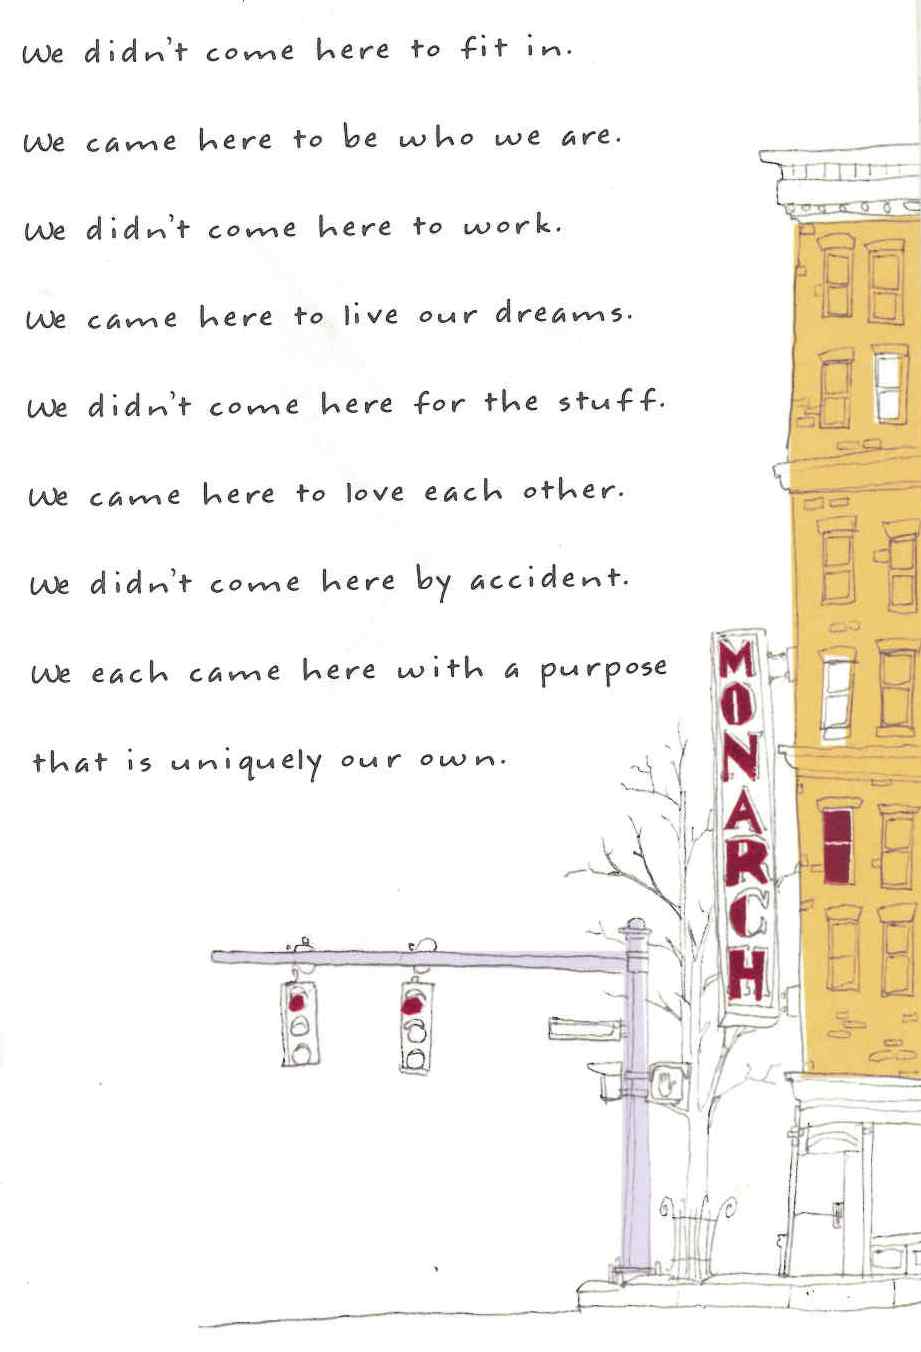 We didn't come here to fit in.
We came here to be who we are.
We didn't come here to work.
We came here to live our dreams.
We didn't come here for the stuff.
We came here to love each other.
We didn't come here by accident.
We each came here with a purpose
that is uniquely our own.
MONARCH